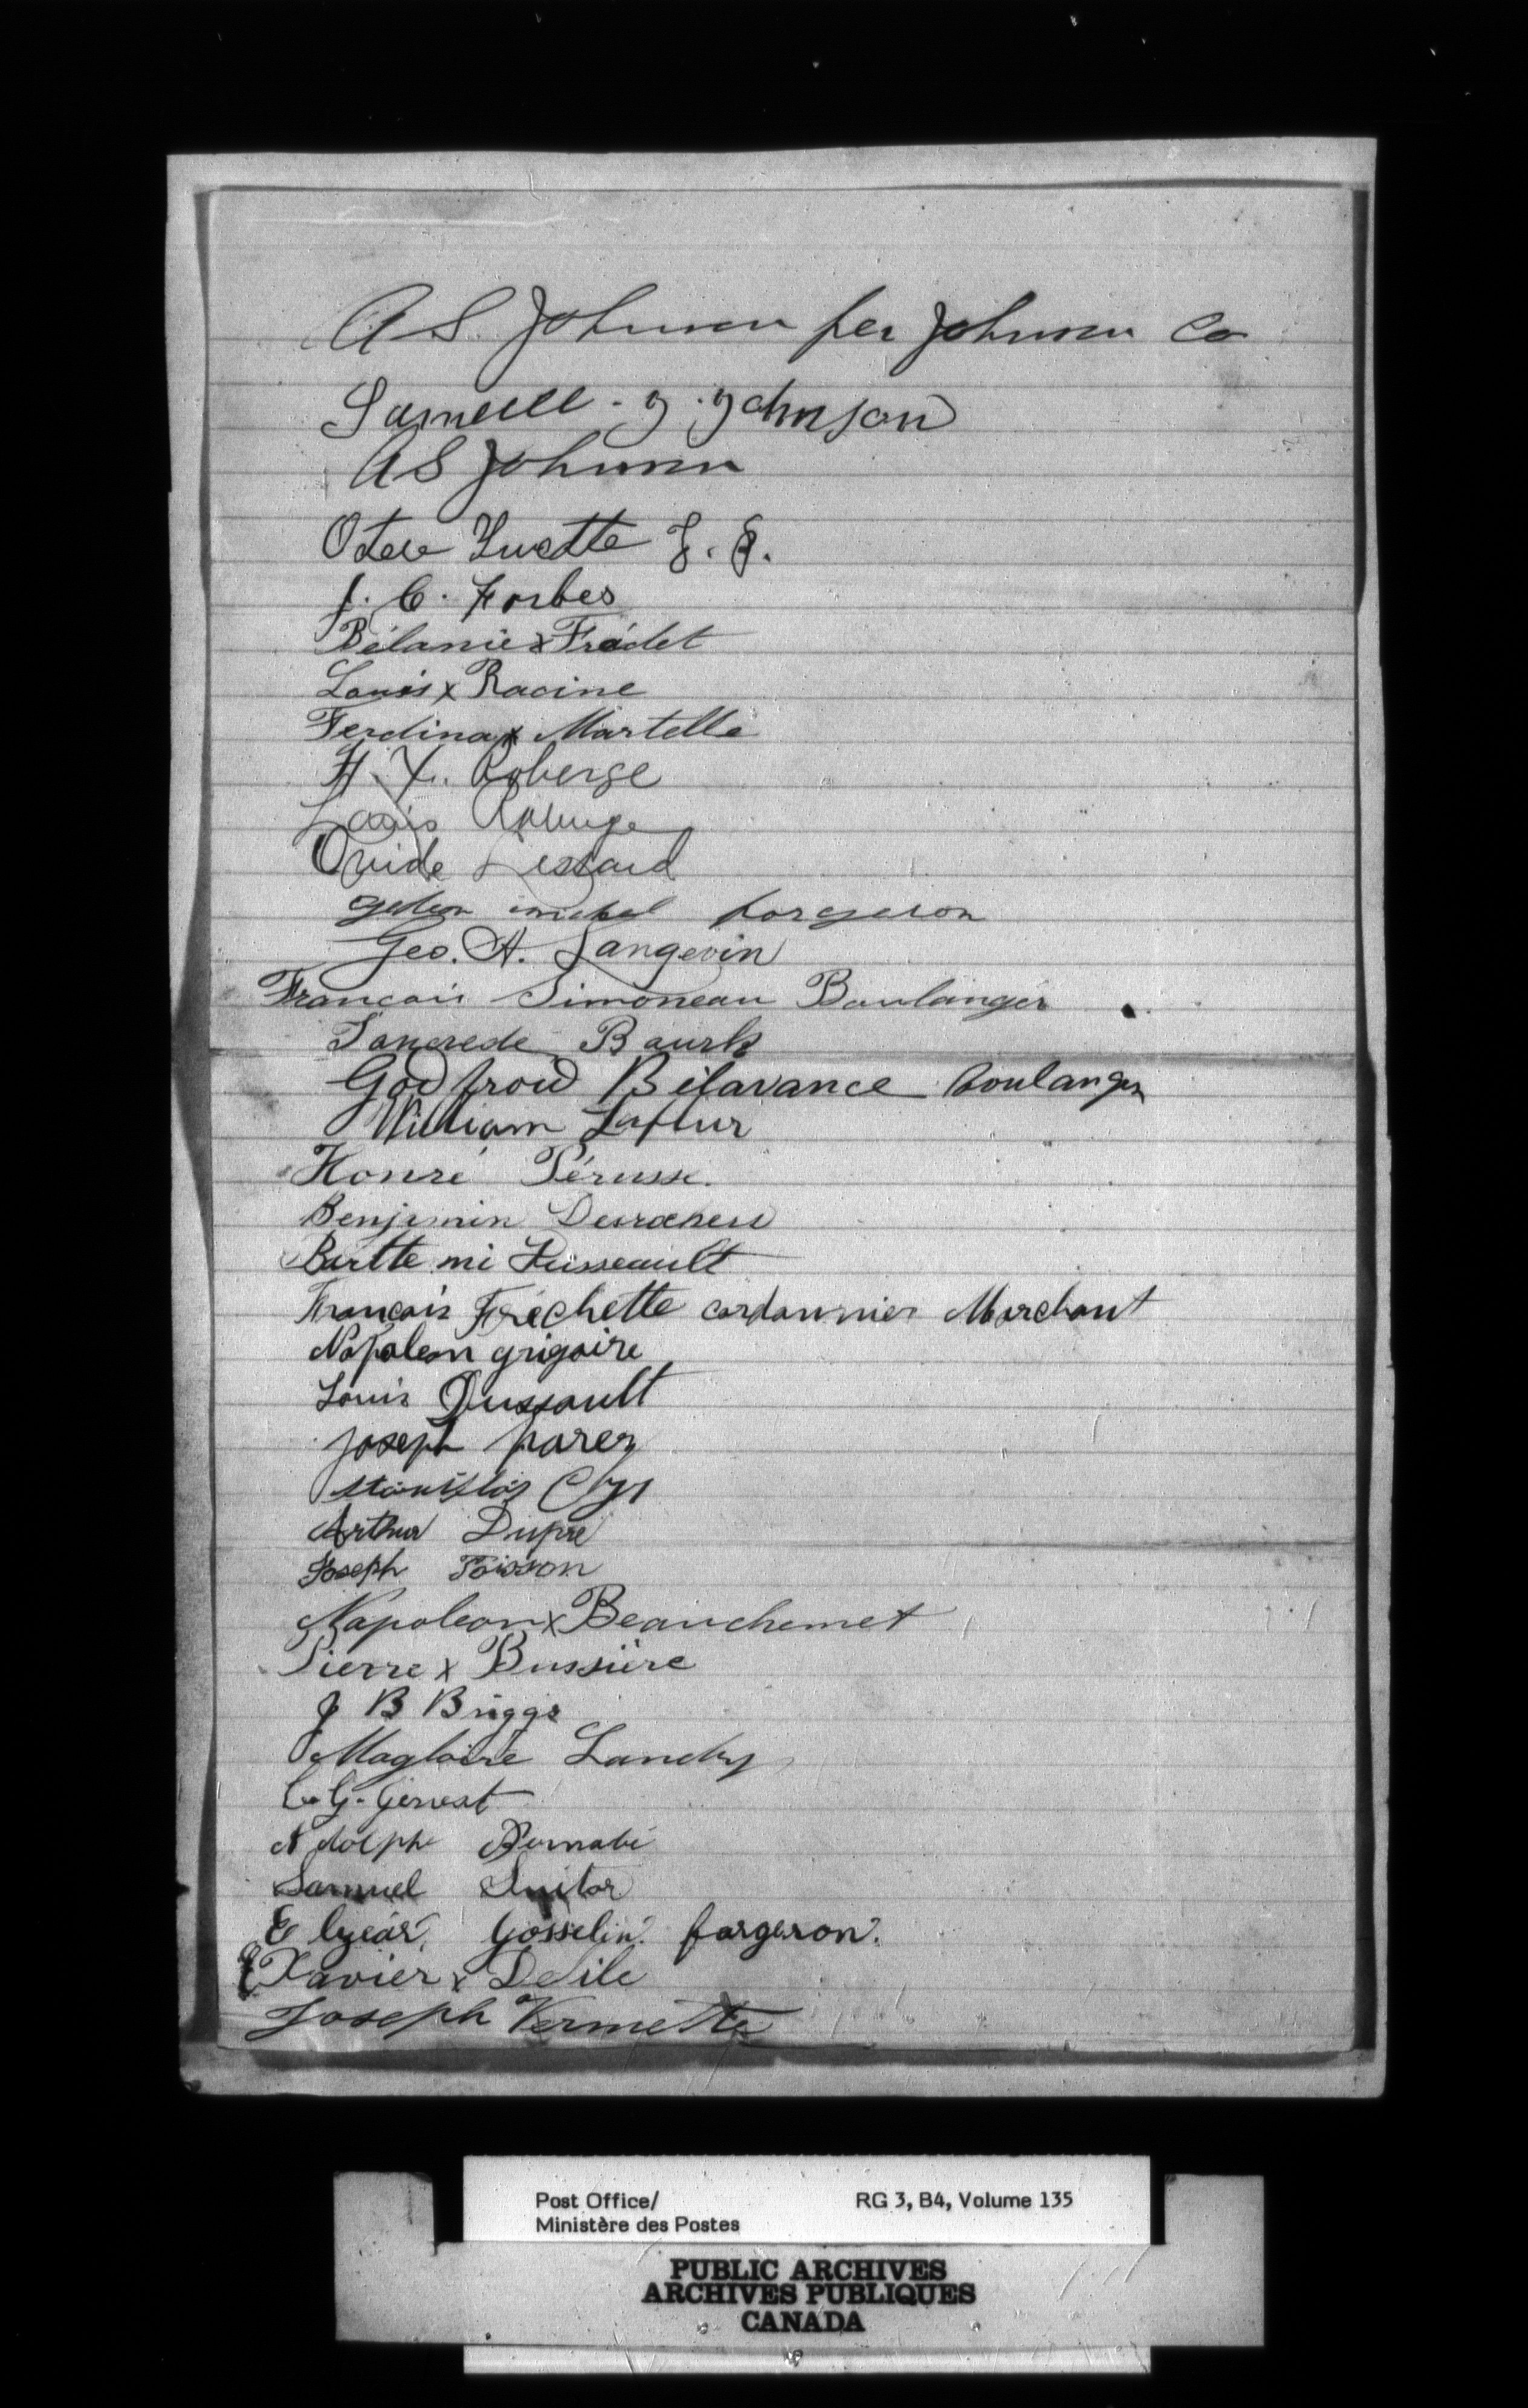 A S Johnson per Johnson Co
Samuell. J. Johnson
A S Johnson
J. C. Forbes
Bélanie x Fradet
Louis x Racine
Ferdina x Martelle
F. X. Roberge
Louis Roberge
Ovide Lessard
forgeron
Geo. A. Langevin
Francois Simoneau Boulanger
Tancrede Bourk
Godfroid Bilavance boulanger
William Lafleur
Honré Pérusse.
Benjimin Desrochers
Francois Frechette cordonnier Marchant
Napoleon grigoire
Louis Dussault
Joseph parez
Stanislas Cyr
Arthur Dupre
Joseph Poisson
Napoleon x Beauchemet
Pierre x Bussière
J B Briggs
Magloire Landry
C. G. Genest
Adolphe Barnabé
Samuel Suitor
Elzear. Gosselin. forgeron.
Xavier x Delile
Joseph Vermette
Post Office/ RG 3, B4, Volume 135
Ministère des Postes
PUBLIC ARCHIVES
ARCHIVES PUBLIQUES
CANADA